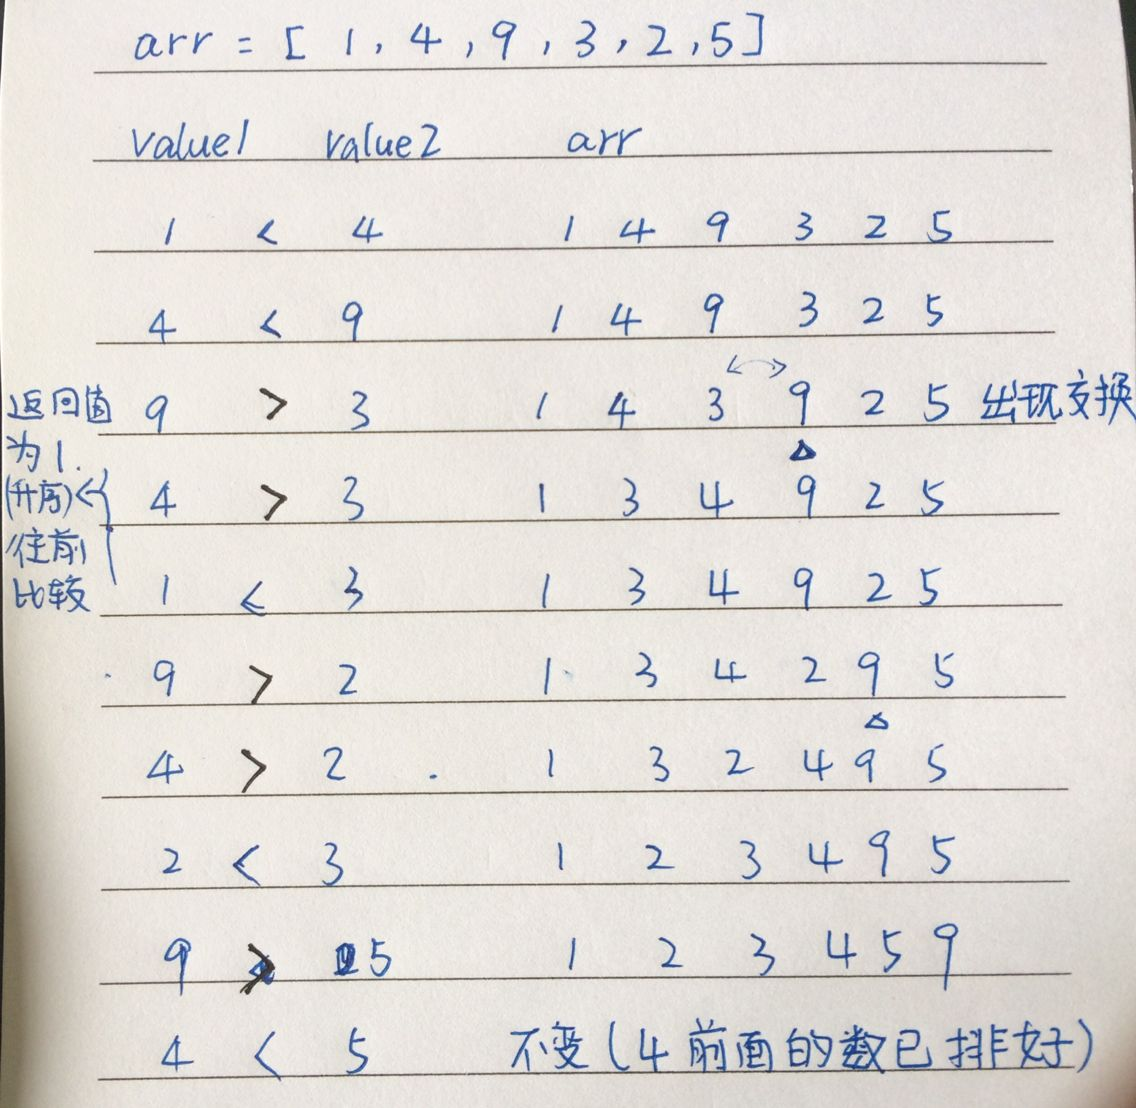 arr = [ 1, 4, 9, 3, 2, 5 ]
value1 value2 arr
1 < 4 1 4 9 3 2 5
4 < 9 1 4 9 3 2 5
返回值 9 > 3 1 4 3 9 2 5 出现交换
为1.
(升序) 4 > 3 1 3 4 9 2 5
往前
比较 1 < 3 1 3 4 9 2 5
9 > 2 1 3 4 2 9 5
4 > 2 1 3 2 4 9 5
2 < 3 1 2 3 4 9 5
9 > 5 1 2 3 4 5 9
4 < 5 不变 (4前面的数已排好)